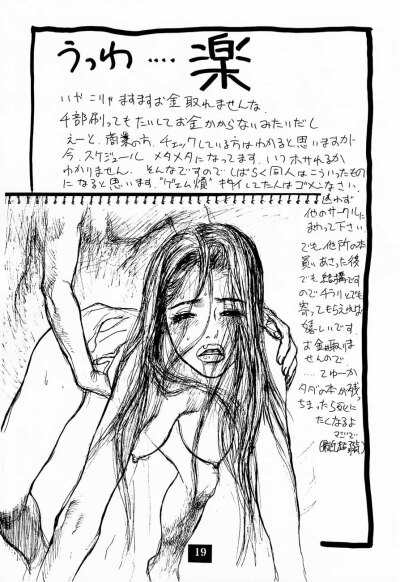 うっわ‥‥楽
いやこりゃますますお金取れませんな。
千部刷ってもたいしてお金かからないみたいだし
えーと、商業の方、チェックしている方はわかると思いますが
今、スケジュールメタメタになってます。いつホサれるか
わかりません。そんなですのでしばらく同人はこういったもの
になると思います。"ゲェム煩"キタイしてた人はゴメンなさい。
他のサークルに
まわって下さい。
でも他所の本
買いあさった後
でも結構です
のでチラリとでも
寄ってもらえれば
嬉しいです。
お金取りま
せんので
‥‥てゆーか
タダの本が残っ
ちまったら死に
たくなるよ
マジで
19